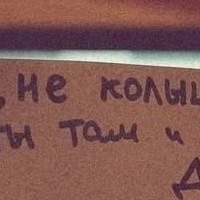 , не колыш
ты там и
Д